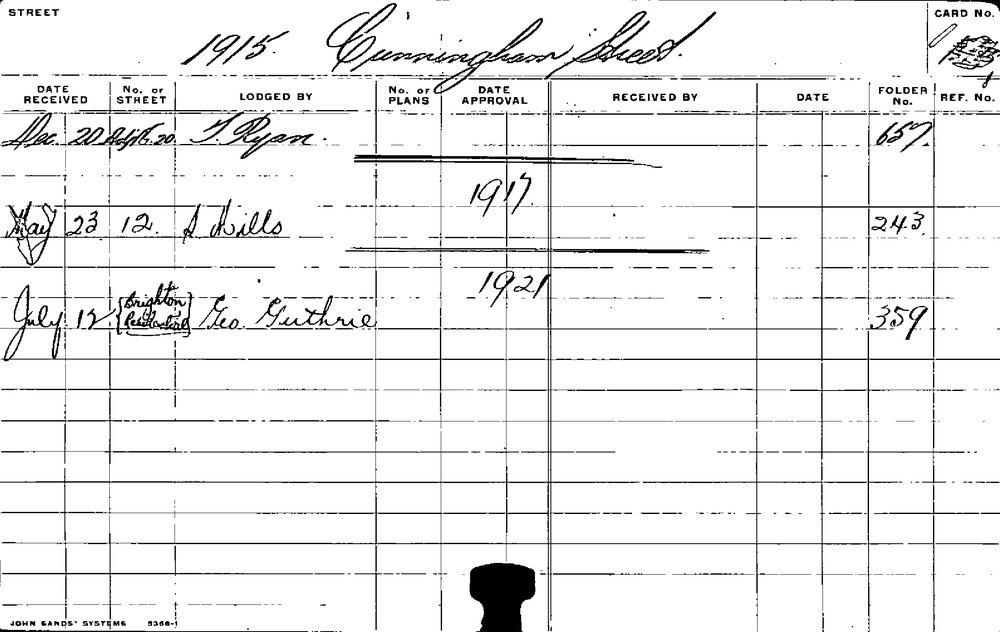 STREET
CARD No.
1915. Cunningham Street.
DATE RECEIVED No. OF STREET LODGED BY No. OF PLANS DATE APPROVAL RECEIVED BY DATE FOLDER No. REF. No.
Dec. 20 Adj 18.20 T. Ryan. 657.
1917.
May 23 12. S Mills 243.
1921
July 12 Brighton Geo. Guthrie 359
JOHN SANDS' SYSTEMS 5366-1